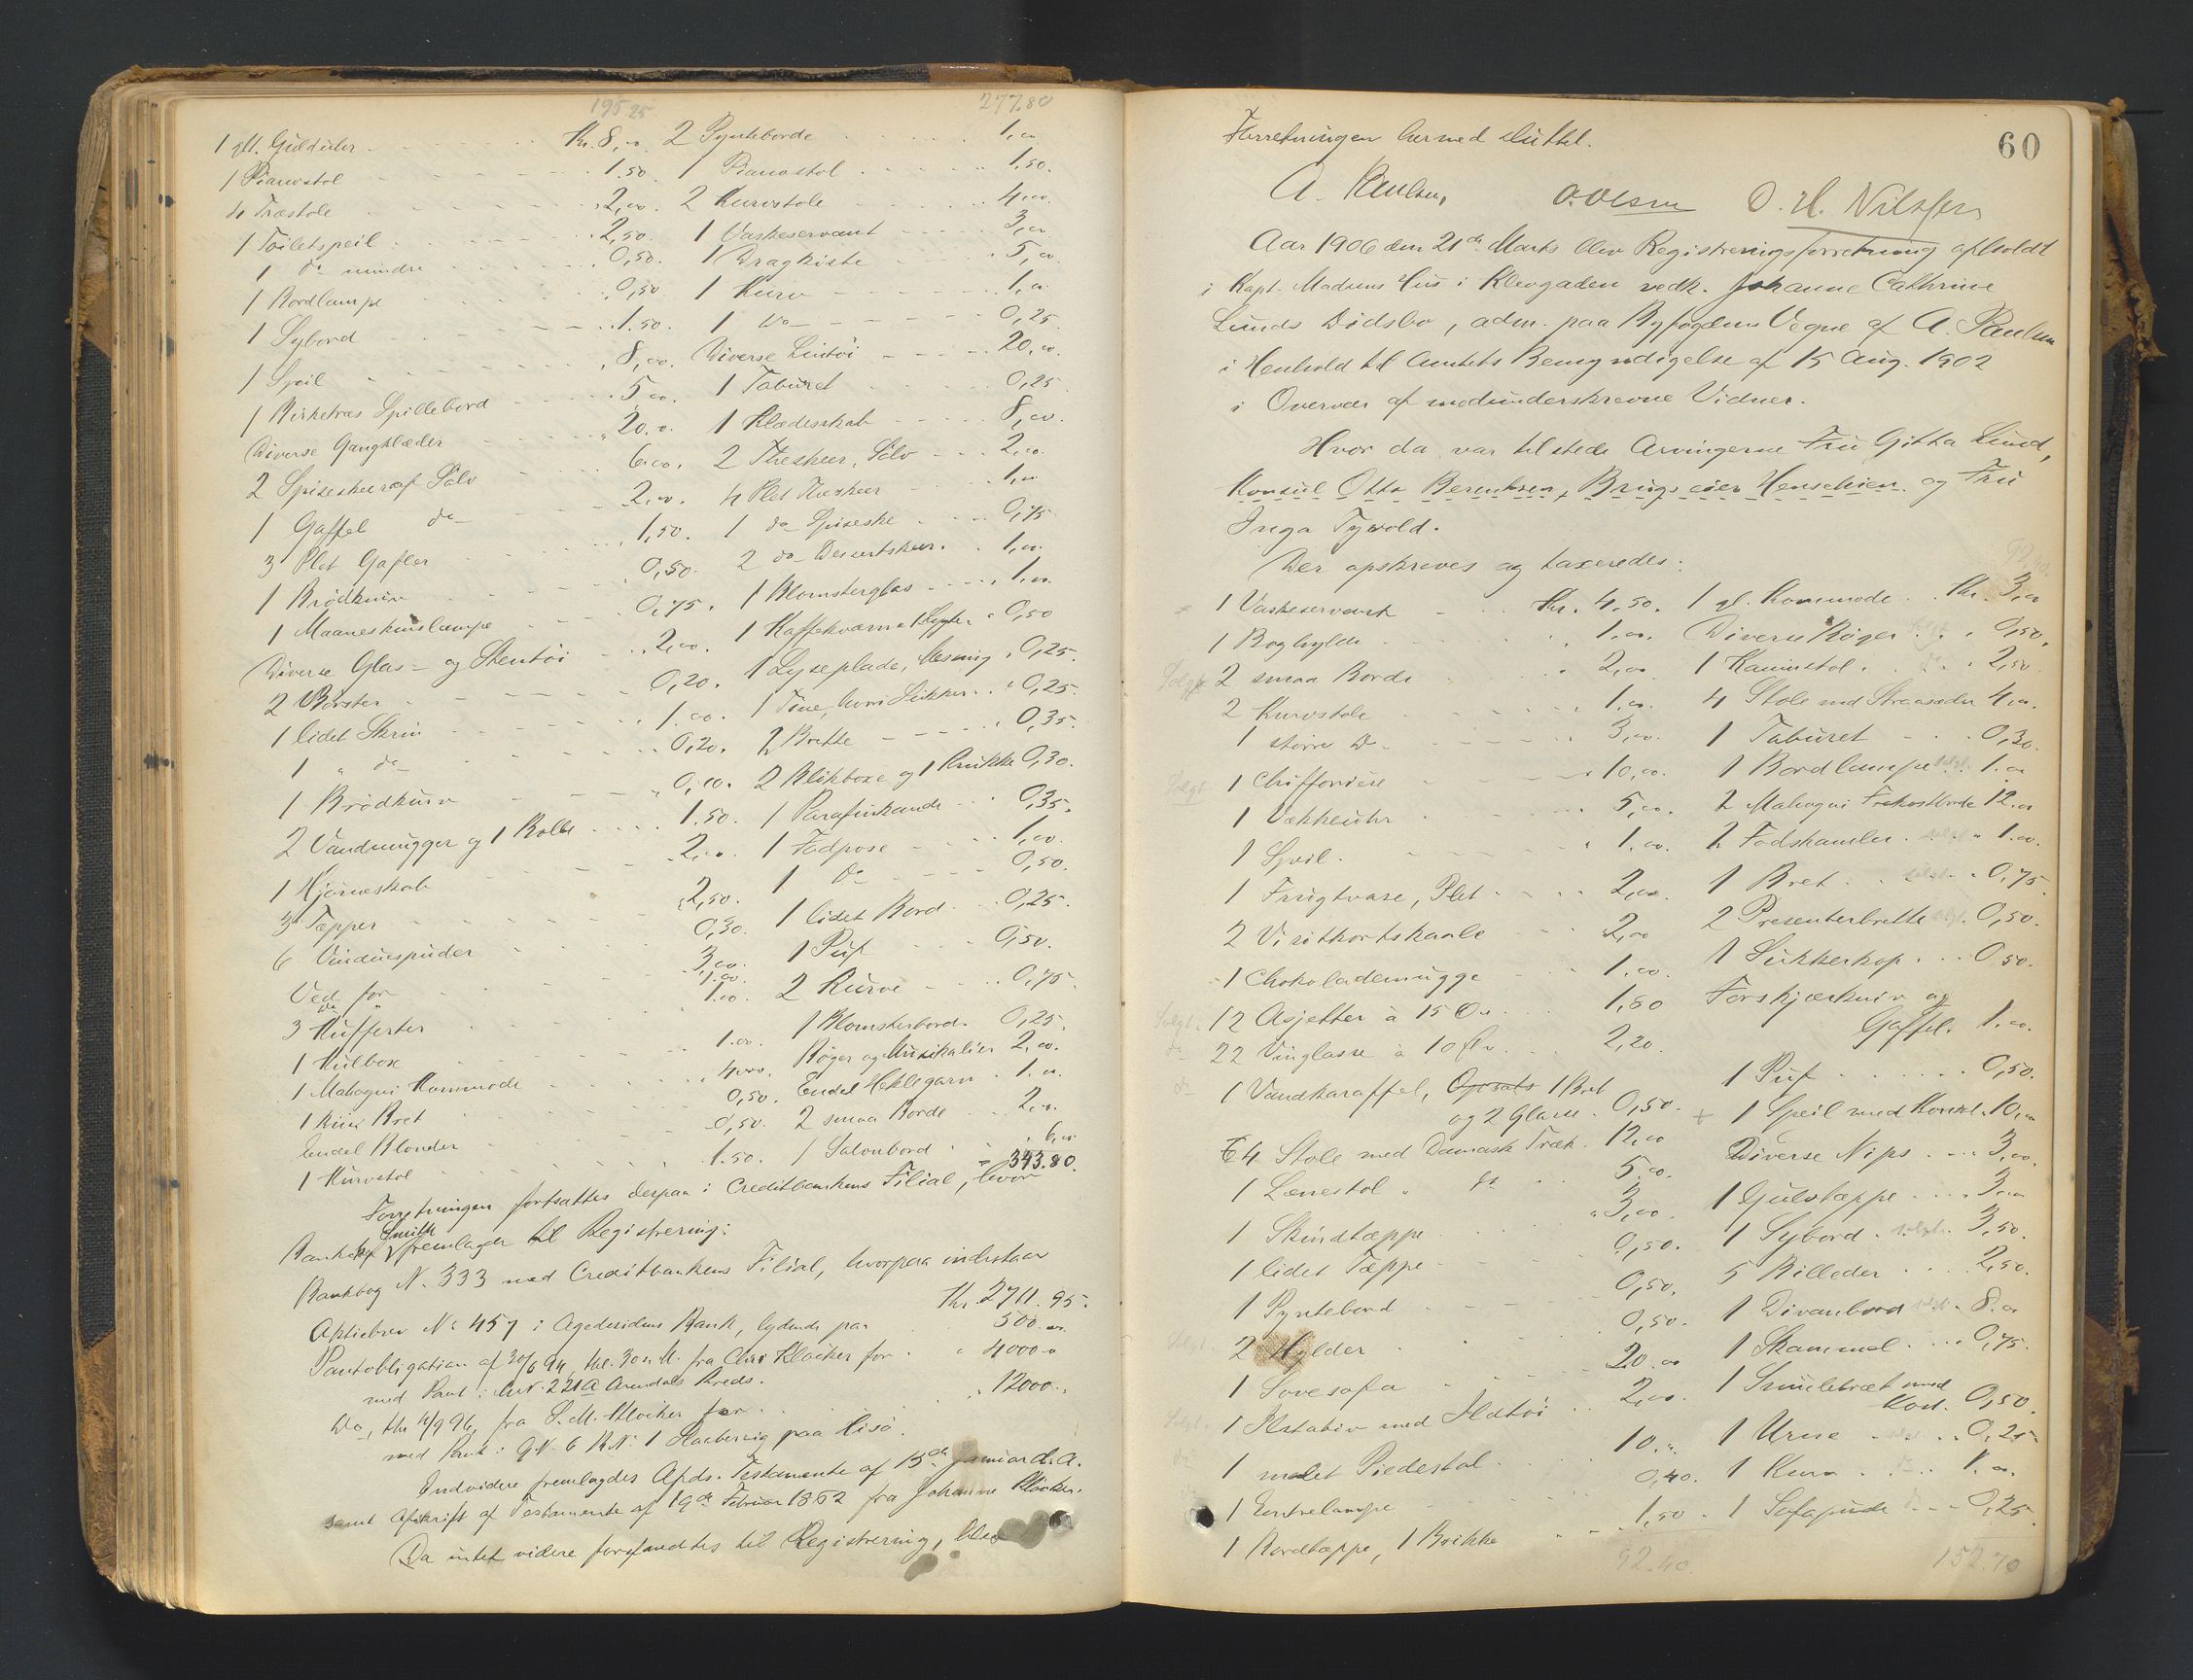 195 25
277.80
1 gll. Gulduhr Kr. 8,00.
1 Pianostol 1.50.
4 Træstole 2,00.
1 Toiletspeil 2,50.
1 do mindre 0,50.
1 Bordlampe 0,50
1 Sybord 1.50.
1 Speil 8,00.
1 Birketræs Spillebord 5,00.
Diverse Gangklæder 20.00.
2 Spiseskeer af Sølv 6.00.
1 Gaffel do 2,00.
3 Plet Gafler 1,50.
1 Brødkurv 0,50.
1 Maaneskinslampe 0,75.
Diverse Glas- og Stentøi 2,00.
2 Børster 0,20.
1 lidet Skrin 1.00.
1 " do 0,20.
1 Brødkurv 0,10.
2 Vandmugger og 1 Bolle 1.50.
1 Hjørneskab 2,00.
3 Tæpper 2,50.
6 Vinduespuder 0,30.
Ved for 3,00.
do " 1.00.
3 Kufferter 1.00.
1 Kulbox 1.00.
1 Mahogni Kommode 4,00.
1 Bret 0,50.
Endel Blonder 0,50.
1 Kurvstol 1.50.
2 Pynteborde 1,00
1 Pianostol 1,50.
2 Kurvstole 4,00.
1 Vaskeservant 3,00
1 Dragkiste 5,00.
1 Kurv 1,00
1 do 0,25
Diverse Lintøi 20,00.
1 Taburet 0,25
1 Klædesskab 8,00.
2 Theskeer, Sølv 2,00.
4 Plet Theskeer 1,00
1 do Spiseske 0,75
2 do Dessertskeer. 1,00.
1 Blomsterglas 1,00.
1 Kaffekværn 1 Lygte 0,50
1 Lyseplade, Messing 0,25.
1 Tine, hvori Sukker 0,25.
2 Brette 0,35.
2 Blikboxe og 1 Krukke 0,30.
1 Parafinkande 0,35.
1 Fodpose 1,00.
1 do 0,50.
1 lidet Bord 0,25.
1 Puf 0,50.
2 Kurve 0,75.
1 Blomsterbord. 0,25.
Bøger og Musikalier 2,00.
Endel Heklegarn 1.00.
2 smaa Borde 2,00.
1 Salonbord 6,00
343.80.
Forretningen fortsattes derpaa i Creditbankens Filial, hvor
Smith
Bankchef fremlagde til Registrering:
Bankbog N. 333 med Creditbankens Filial, hvorpaa indestaar
Kr. 2711.95.
Aktiebrev No 457 i Agdesidens Bank, lydende paa 500.00.
Pantobligation af 30/6 94, fra Chr Kløcker for 4000.00
med Pant i 221a Arendals Kreds.
Do, 4/9 96, fra S. M. Kløcker for 12000.
med Pant i G.N. 6 B.N. 1 paa Hisø.
Endvidere fremlagdes Afds. Testamente af 15de Januar d. A.
samt Afskrift af Testamente af 19de Februar 1862 fra Johanne Kløcker.
Da intet videre forefandtes til Registrering, blev
60
Forretningen hermed sluttet.
A. Paulsen, O. Olsen O. H. Nilssen
Aar 1906 den 21de Marts blev Registreringsforretning afholdt
i Kapt. Madsens Hus i Klevgaden vedk. Johanne Cathrine
Lunds Dødsbo, adm. paa Byfogdens Vegne af A. Paulsen
i Henhold til Amtets Bemyndigelse af 15 Aug. 1902
i Overvær af medunderskrevne Vidner.
Hvor da var tilstede Arvingerne Fru Gitta Lund,
Konsul Otto Berentsen, Brugseier Henschien og Fru
Inga Tyvold.
Der opskreves og taxeredes:
1 Vaskeservant Kr. 4,50.
1 Boghylde 1,00.
Solgt 2 smaa Borde 2,00
2 Kurvstole 1,00.
1 større Do 3,00.
Solgt 1 Chiffoniere 10,00.
1 Vækkeuhr 5,00.
1 Speil 1.00.
1 Frugtvase, Plet 2,00.
2 Visitkortskaale 2,00
1 Chokolademugge 1,00.
Solgt. 12 Asjetter à 15 Øre 1,80
do 22 Vinglasse à 10 Øre 2,20.
do 1 Vandkaraffel, Opsats 1 Bret
og 2 Glasse 0,50.
4 Stole med Damask Træk 12,00
1 Lænestol " do 5.00.
1 Skindtæppe 3,00.
1 lidet Tæppe 0,50.
1 Pyntebord 0,50.
Solgt. 2 Hylder 0,50.
1 Sovesofa 20.00
Solgt. 1 Ilstativ med Ildtøi 2,00.
do 1 malet Piedestal 10.00.
1 Entrelampe 0,40.
1 Bordtæppe, 1 Brikke 1,50.
92.40.
1 gl. Kommode Kr. 3,00
Diverse Bøger 0,50.
1 Kaminstol do 2,50
4 Stole med Straasæder 4,00.
1 Taburet 0,30.
1 Bordlampe solgt. 1.00
2 Mahogni Frokostborde 12.00
2 Fodskamler solgt 1.00.
1 Bret solgt. 0,75.
2 Presenterbrette solgt. 0,50.
1 Sukkerkop 0,50.
Forskjærkniv og
Gaffel. 1.00.
1 Puf 0,50.
+ 1 Speil med Konsol. 10,00
Diverse Nips 3,00.
1 Gulvtæppe 3,00
1 Sybord solgt. 3,50.
5 Billeder 2,50.
1 Divanbord solgt. 8.00
1 Skammel 0,75.
1 Smulebræt med
Kost. 0,50.
1 Urne 0,25
1 Kurv do 1.00.
1 Sofapude 0,25.
152.70